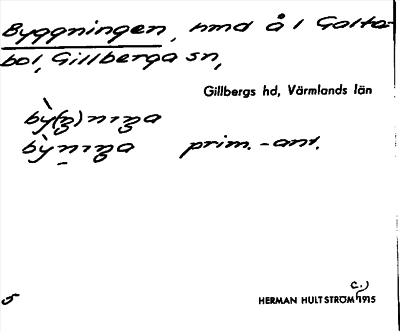 Byggningen, hmd å l Galta-
bol, Gillberga sn,
Gillbergs hd, Värmlands län
prim.-ant.
5
c.)
HERMAN HULTSTRÖM 1915